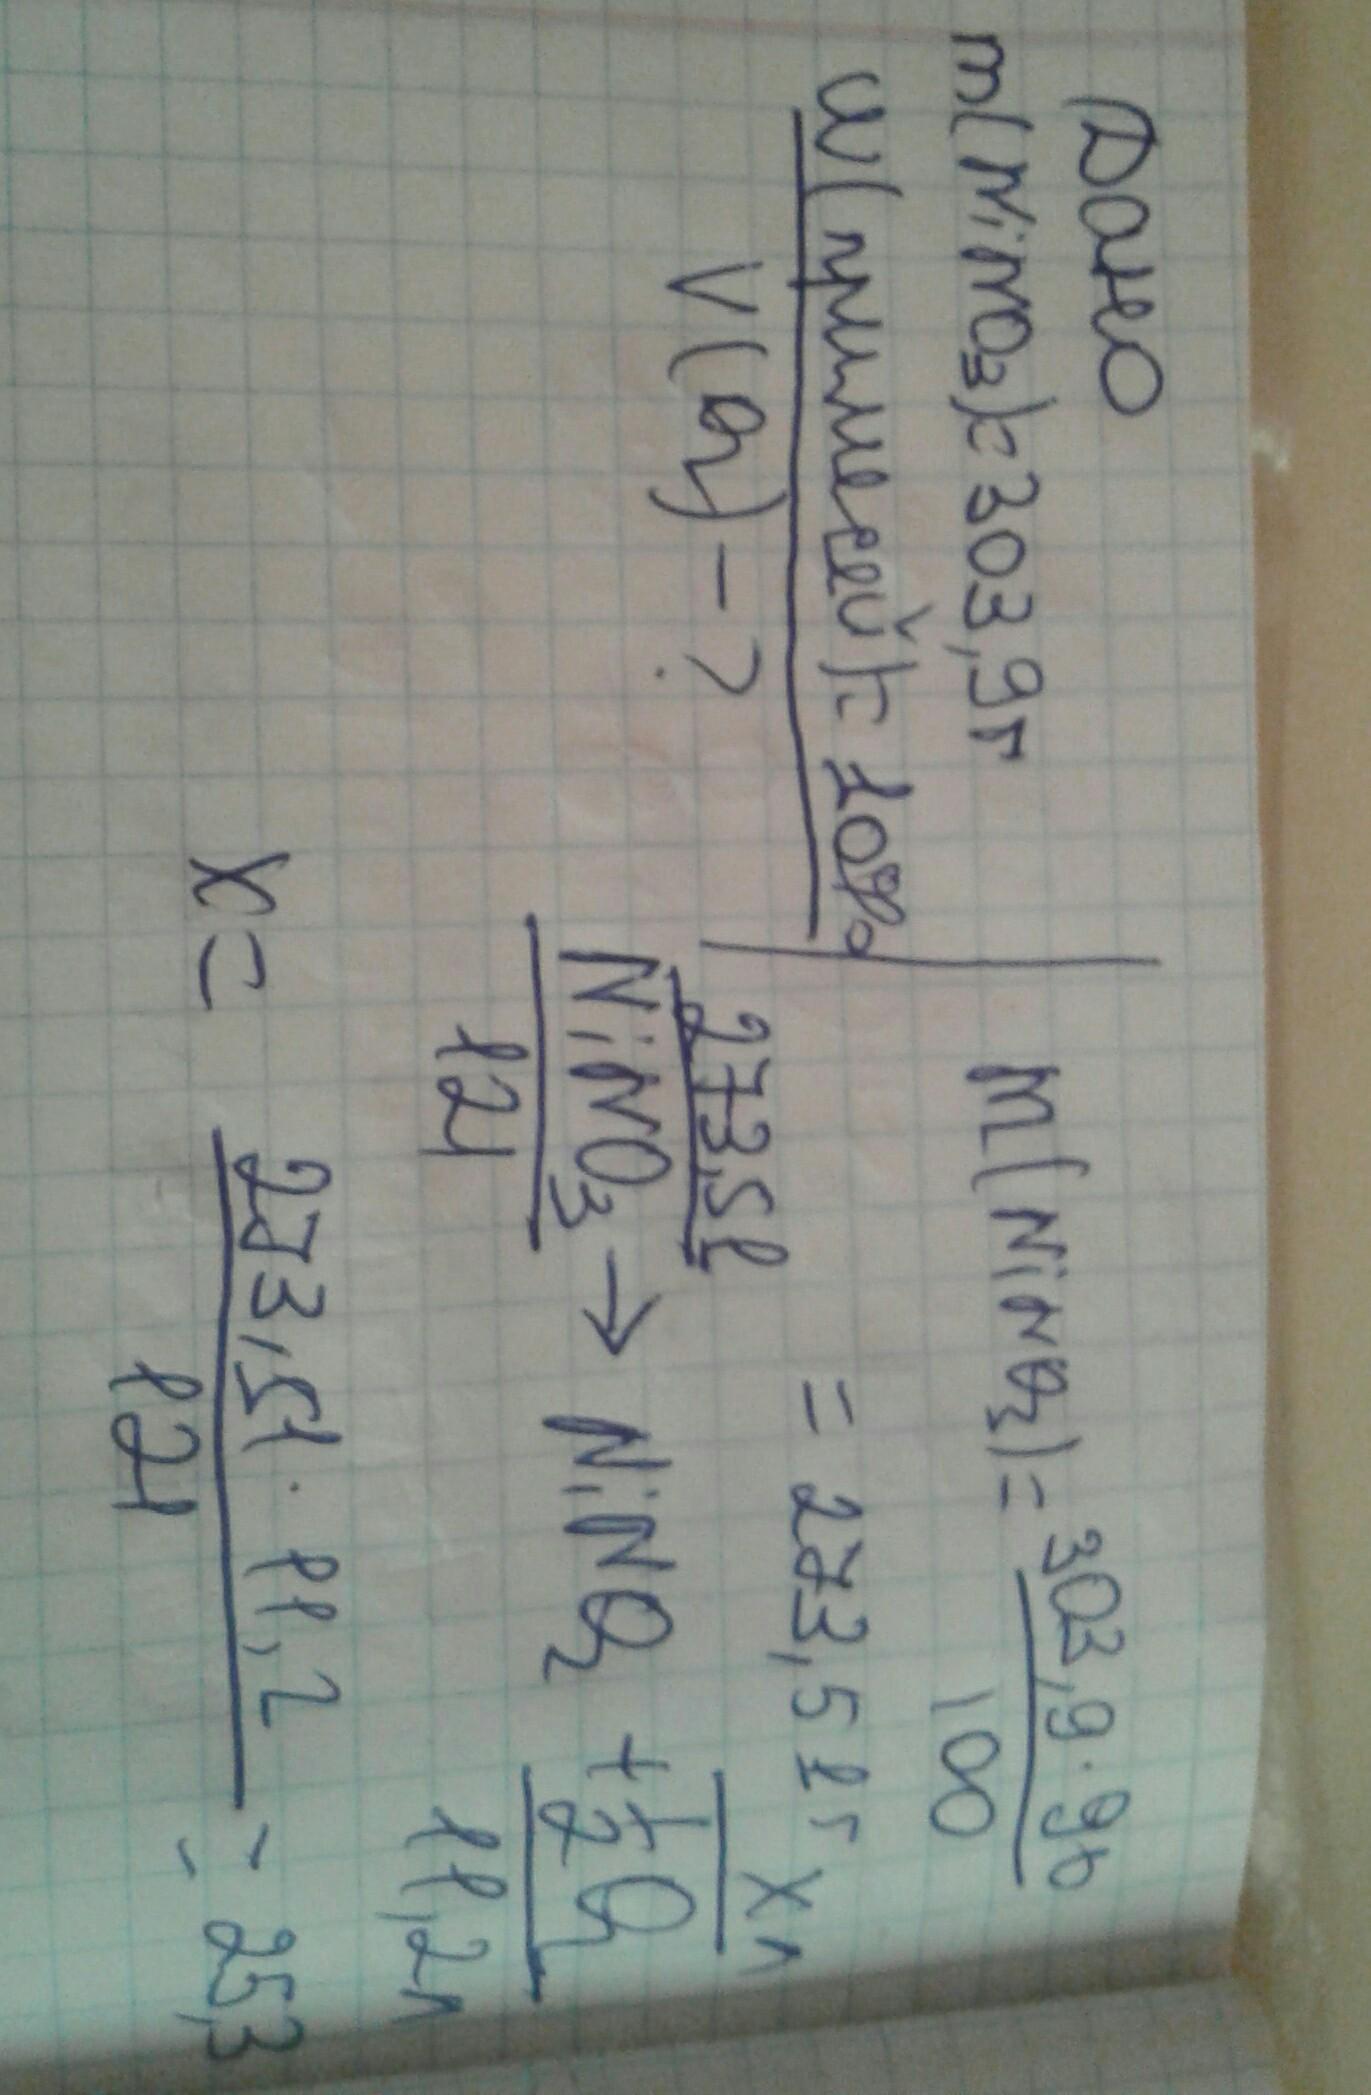 Дано
m(NiNO3)=303,9г
W(примесей)=10%
V(O2)-?
m(NiNO3)=303,9·90
100
=273,51г
273,51 xл
NiNO3→NiNO2+1/2O2
121 11,2л
x=273,51·11,2
121
=25,3